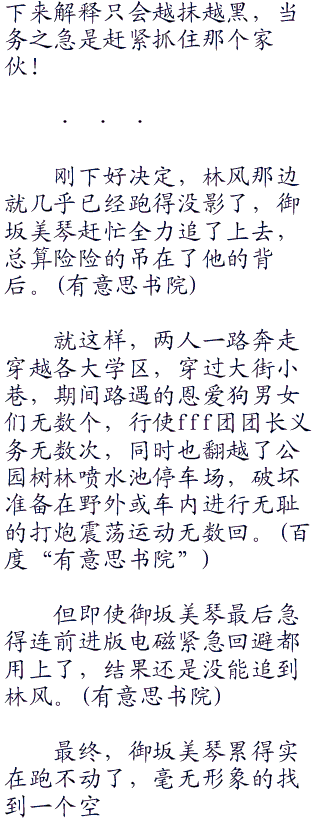 下来解释只会越抹越黑，当
务之急是赶紧抓住那个家
伙！
· · ·
刚下好决定，林风那边
就几乎已经跑得没影了，御
坂美琴赶忙全力追了上去，
总算险险的吊在了他的背
后。(有意思书院)
就这样，两人一路奔走
穿越各大学区，穿过大街小
巷，期间路遇的恩爱狗男女
们无数个，行使fff团团长义
务无数次，同时也翻越了公
园树林喷水池停车场，破坏
准备在野外或车内进行无耻
的打炮震荡运动无数回。(百
度“有意思书院”)
但即使御坂美琴最后急
得连前进版电磁紧急回避都
用上了，结果还是没能追到
林风。(有意思书院)
最终，御坂美琴累得实
在跑不动了，毫无形象的找
到一个空